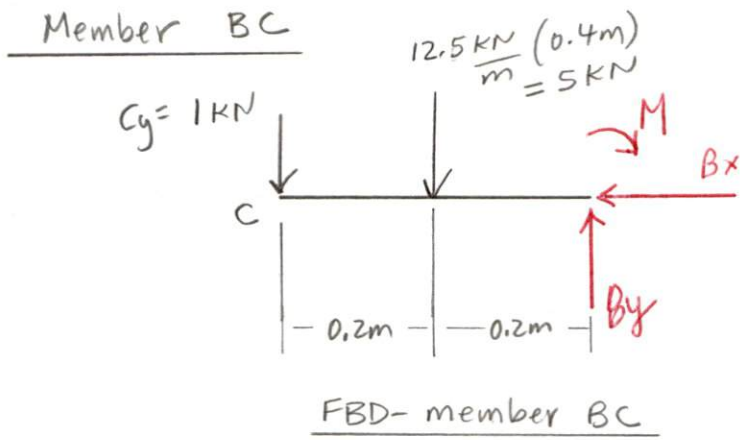 Member BC
12.5 kN/m (0.4m)
= 5 kN
Cy = 1 kN
M
Bx
C
By
0.2m
0.2m
FBD- member BC